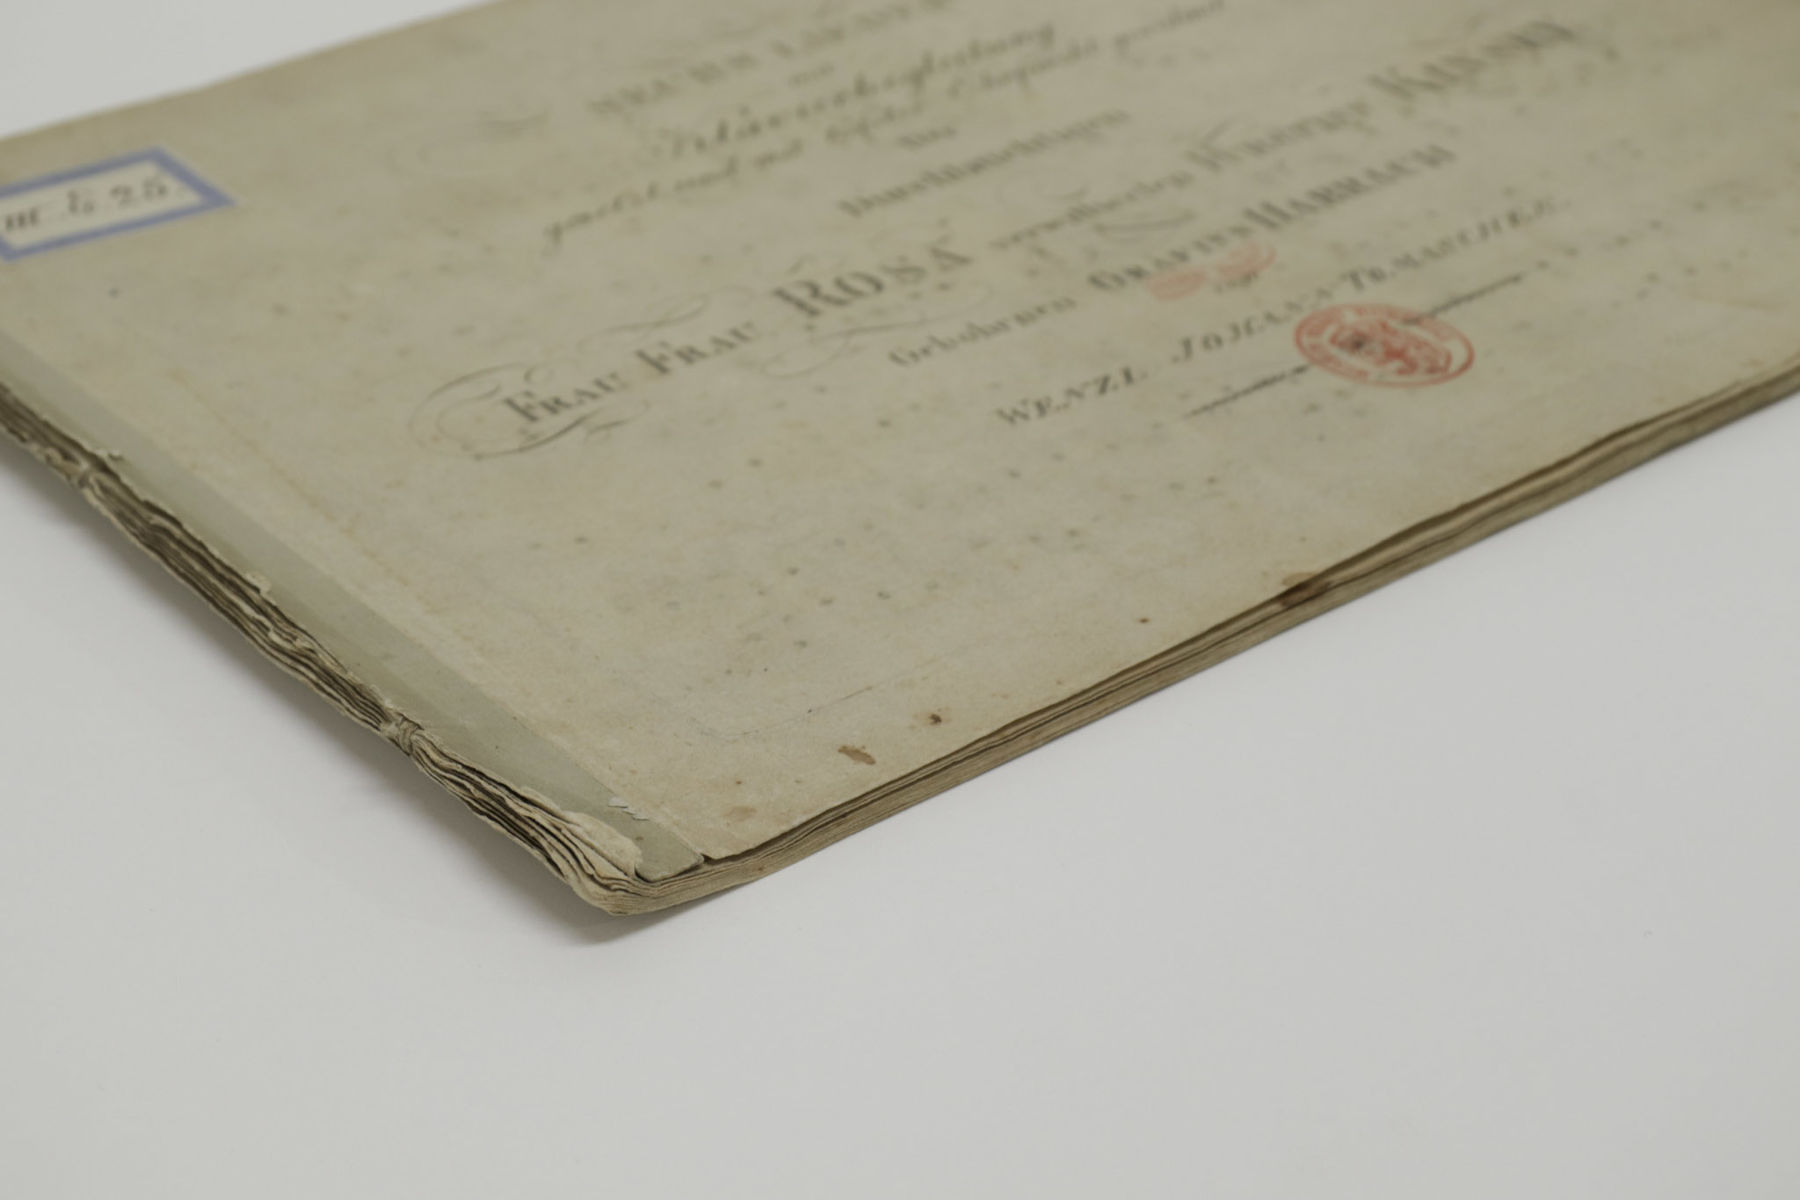 LIEDER
mit
Klavierbegleitung
gesetzt und mit tiefster Ehrfurcht gewidmet
Der
Durchlauchtigen
FRAU FRAU ROSA verwittweten FÜRSTINN KINSKY
Gebohrnen GRÄFINN HARRACH
von
WENZL JOHANN TOMASCHEK.
III 25.